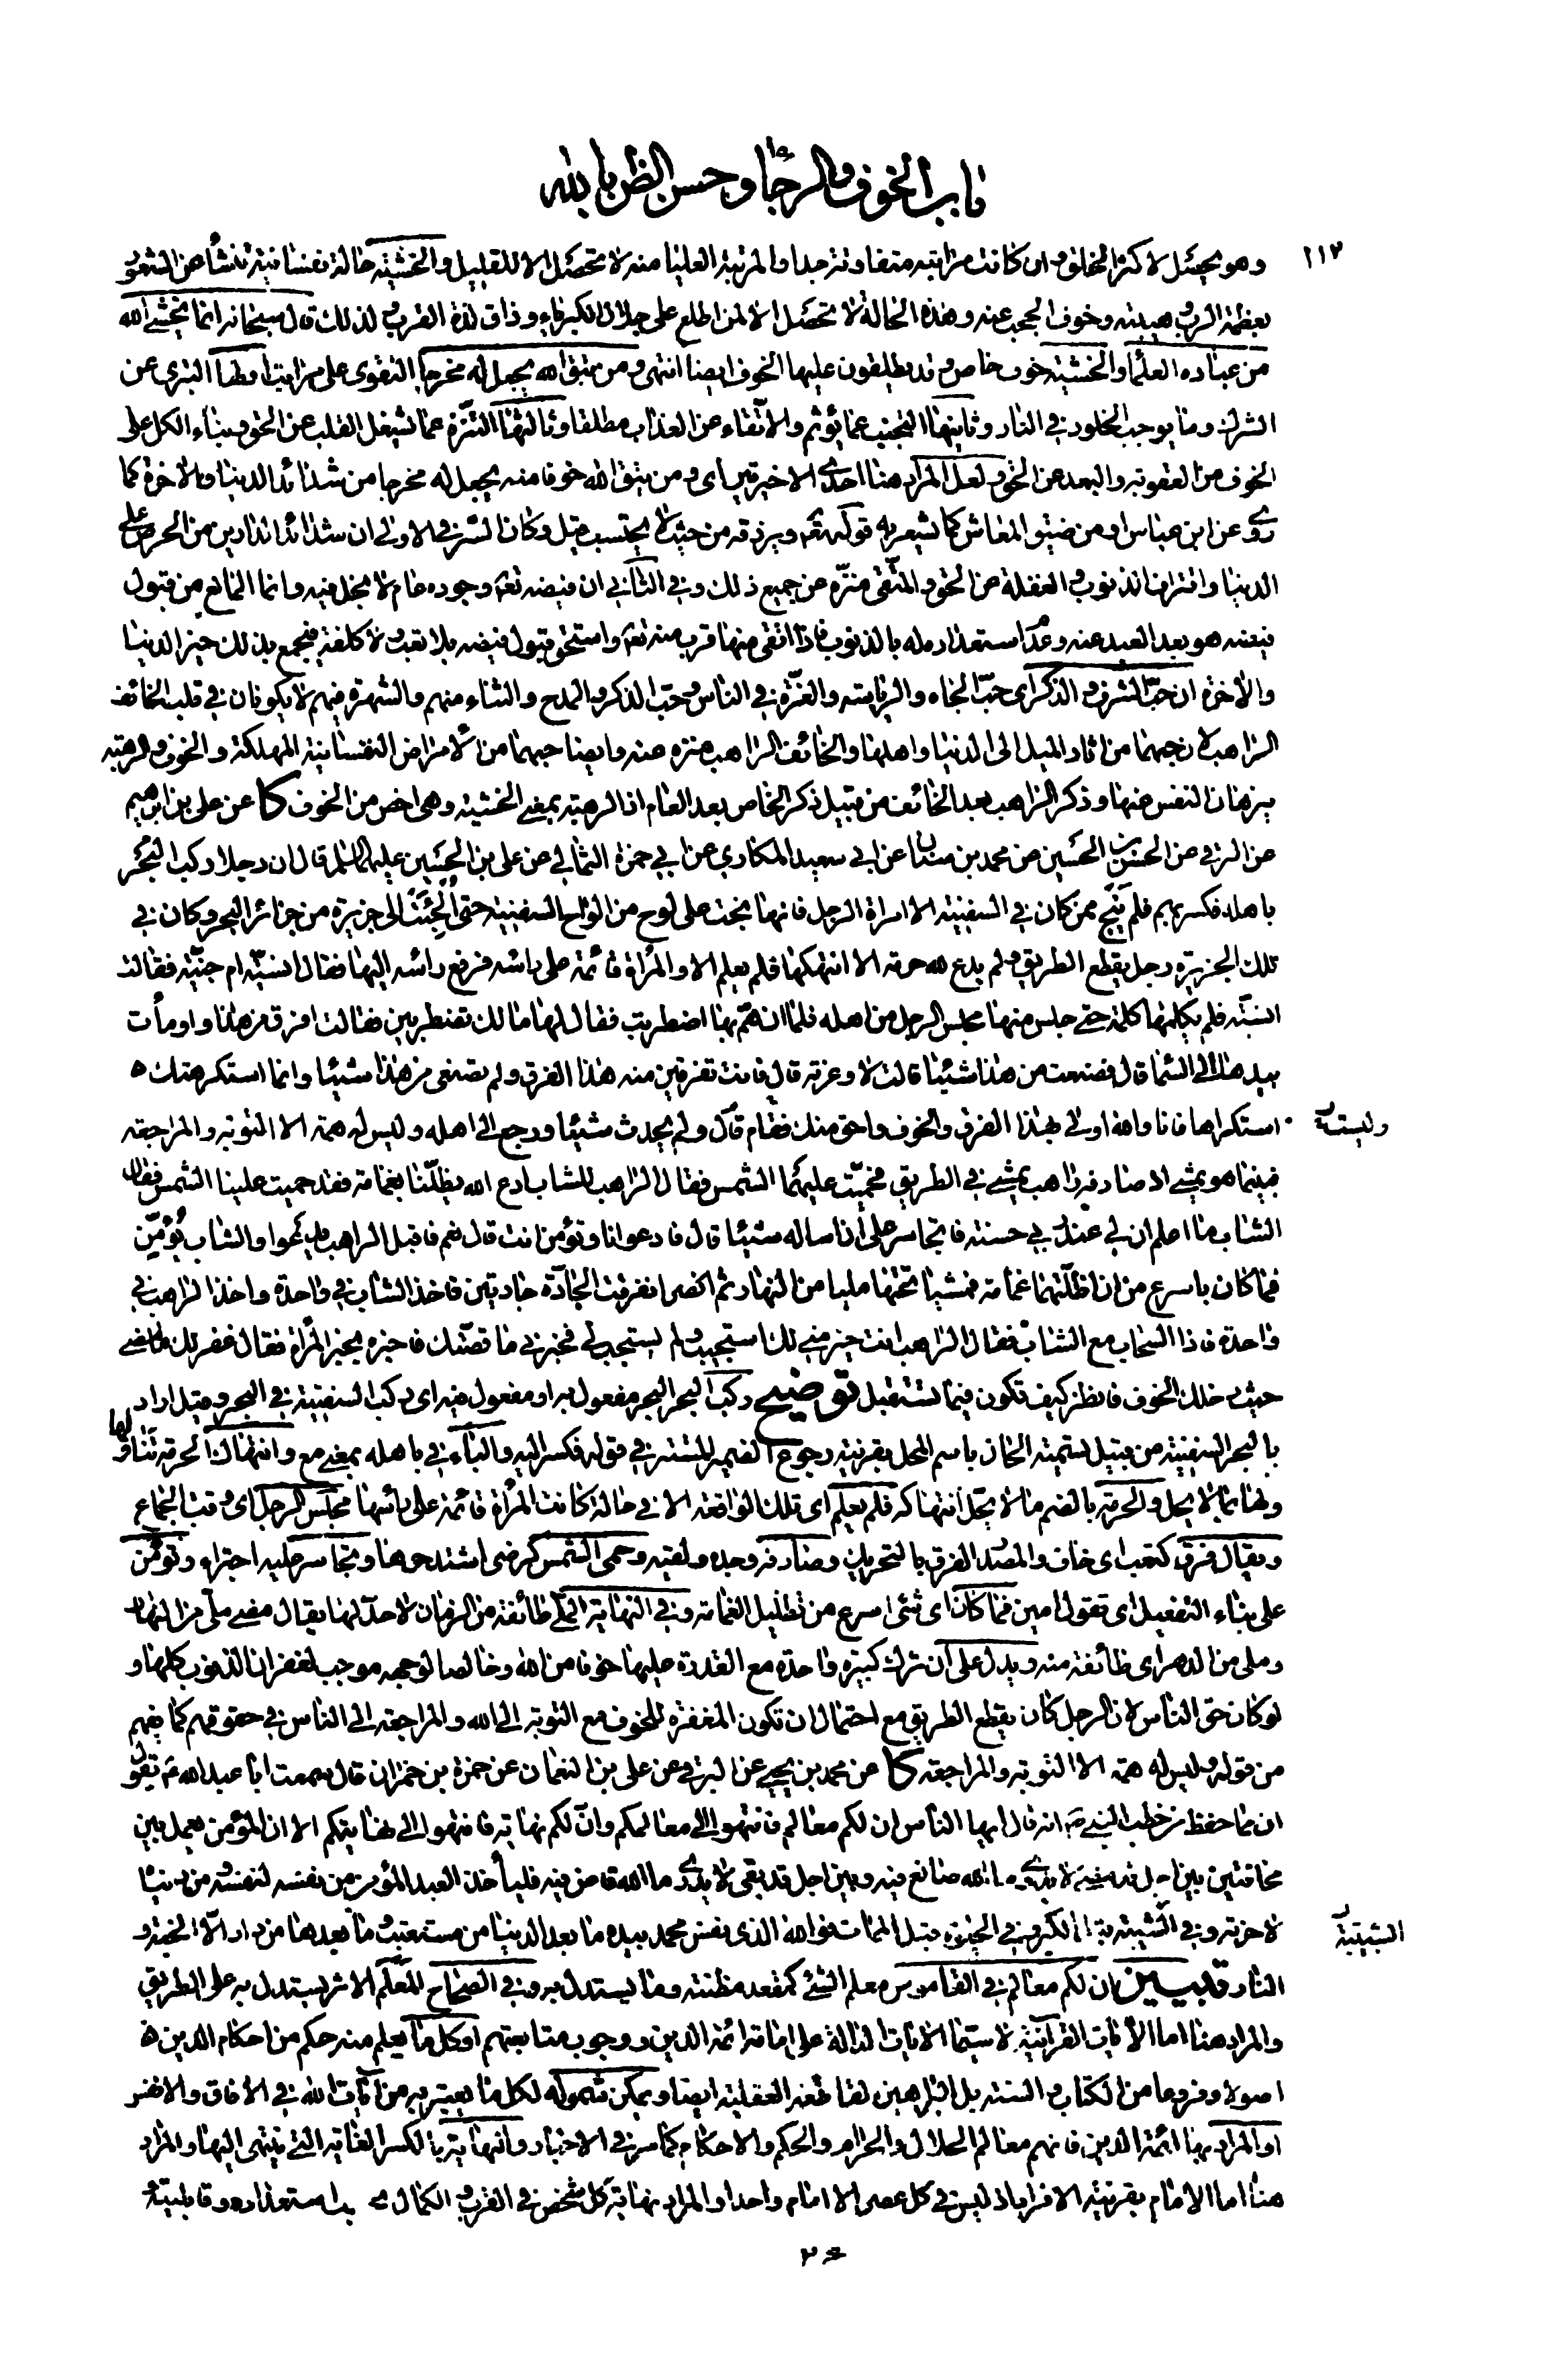 باب الخوف والرجاء وحسن الظن بالله
١١٣
وهو يحصل لاكثر الخلق وان كانت مراتبه متفاوتة جدا والمرتبة العليا منه لا تحصل الا للقليل والخشية حالة نفسانية تنشأ عن الشعور
بعظمة الرب وهيبته وخوف الحجب عنه وهذه الحالة لا تحصل الا لمن اطلع على جلال الكبرياء وذاق لذة القرب ولذلك قال سبحانه انما يخشى الله
من عباده العلماء والخشية خوف خاص وقد يطلقون عليها الخوف ايضا انتهى ومن يتق الله يجعل له مخرجا التقوى على مراتب اولها التبري عن
الشرك وما يوجب الخلود في النار وثانيها التجنب عما يؤثم والاتقاء عن العذاب مطلقا وثالثها التنزه عما يشغل القلب عن الحق وبناء الكل على
الخوف من العقوبة والبعد عن الحق ولعل المراد هنا احدى الاخيرتين اى ومن يتق الله خوفا منه يجعل له مخرجا من شدائد الدنيا والاخرة كما
روى عن ابن عباس او من ضيق المعاش كما يشعر به قوله تعالى ويرزقه من حيث لا يحتسب قيل وكان السر في الاول ان شدائد الدارين من الحرص على
الدنيا واقتراف الذنوب والغفلة عن الحق والمتقى منزه عن جميع ذلك وفي الثاني ان فيضه تعالى وجوده عام لا بخل فيه وانما المانع من قبول
فيضه هو بعد العبد عنه وعدم استعداده له بالذنوب فاذا اتقى منها قرب منه تعالى واستحق قبول فيضه بلا تعب ولا كلفة فيجمع بذلك خير الدنيا
والاخرة ان حب الشرف والذكر اى حب الجاه والرياسة والعزة في الناس وحب الذكر والمدح والثناء منهم والشهرة فيهم لا يكونان في قلب الخائف
الراهب لان حبهما من اثار الميل الى الدنيا واهلها والخائف الراهب منزه عنه وايضا حبهما من الامراض النفسانية المهلكة والخوف والرهبة
ينزهان النفس عنها وذكر الراهب بعد الخائف من قبيل ذكر الخاص بعد العام اذ الرهبة بمعنى الخشية وهى اخص من الخوف كا عن على بن ابرهيم
عن البرقي عن الحسن بن الحسين عن محمد بن سنان عن ابى سعيد المكارى عن ابي حمزة الثمالى عن على بن الحسين عليهما السلم قال ان رجلا ركب البحر
باهله فكسر بهم فلم ينج ممن كان في السفينة الا امراة الرجل فانها نجت على لوح من الواح السفينة حتى الجئت الى جزيرة من جزائر البحر وكان في
تلك الجزيرة رجل يقطع الطريق ولم يدع لله حرمة الا انتهكها فلم يعلم الا والمرأة قائمة على راسه فرفع راسه اليها فقال انسية ام جنية فقالت
انسية فلم يكلمها كلمة حتى جلس منها مجلس الرجل من اهله فلما ان هم بها اضطربت فقال لها مالك تضطربين فقالت افرق من هذا واومأت
بيدها الى السماء قال فصنعت من هذا شيئا قالت لا وعزته قال فانت تفرقين منه هذا الفرق ولم تصنعى من هذا شيئا وانما استكرهتك
استكراها فانا والله اولى بهذا الفرق والخوف واحق منك فقام قال ولم يحدث شيئا ورجع الى اهله وليس له همة الا التوبة والمراجعة
وليست
فبينما هو يمشى اذ صادفه راهب يمشى في الطريق فحميت عليهما الشمس فقال الراهب للشاب ادع الله يظلنا بغمامة فقد حميت علينا الشمس فقال
الشاب ما اعلم ان لى عند ربى حسنة فاتجاسر على ان اساله شيئا قال فادعو انا وتؤمن انت قال نعم فاقبل الراهب يدعوا والشاب يؤمن
فما كان باسرع من ان اظلتهما غمامة فمشيا تحتها مليا من النهار ثم انفرقت الجادة جادتين فاخذ الشاب في واحدة واخذ الراهب في
واحدة فاذا السحاب مع الشاب فقال الراهب انت خير منى لك استجيب ولم يستجب لى فخبرنى ما قصتك فاخبره بخبر المرأة فقال غفر لك ما مضى
حيث دخلك الخوف فانظر كيف تكون فيما تستقبل توضيح ركب البحر البحر مفعول به او مفعول فيه اى ركب السفينة في البحر وقيل اراد
بالبحر السفينة من قبيل تسمية الحال باسم المحل بقرينة رجوع الضمير المستتر في قوله فكسر اليه والباء في باهله بمعنى مع وانتهاك الحرمة تناولها
بما لا يحل والحرمة بالضم ما لا يحل انتهاكه فلم يعلم اى تلك الواقعة الا في حالة كانت المرأة قائمة على راسها مجلس الرجل اى وقت الجماع
ويقال فرق كتعب اى خاف والمصدر الفرق بالتحريك وصادفه وجده ولقيه وحمى الشمس كرضى اشتد حرها وتجاسر عليه اجترأ وتؤمن
على بناء التفعيل اى تقول امين فما كان اى شئ اسرع من تظليل الغمامة وفي النهاية الملى طائفة من الزمان لا حد لها يقال مضى ملى من النهار
وملى من الدهر اى طائفة منه ويدل على ان ترك كبيرة واحدة مع القدرة عليها خوفا من الله وخالصا لوجهه موجب لغفران الذنوب كلها ولو
كان حق الناس لان الرجل كان يقطع الطريق مع احتمال ان تكون المغفرة للخوف مع التوبة الى الله والمراجعة الى الناس في حقوقهم كما يفهم
من قوله وليس له همة الا التوبة والمراجعة كا عن محمد بن يحيى عن البرقي عن على بن النعمان عن حمزة بن حمران قال سمعت ابا عبد الله ع يقول
ان مما حفظ من خطب النبى ص انه قال ايها الناس ان لكم معالم فانتهوا الى معالمكم وان لكم نهاية فانتهوا الى نهايتكم الا ان المؤمن يعمل بين
مخافتين بين اجل قد مضى لا يدرى ما الله صانع فيه وبين اجل قد بقى لا يدرى ما الله قاض فيه فليأخذ العبد المؤمن من نفسه لنفسه ومن دنياه
لاخرته وفي الشيبة قبل الكبر وفي الحيوة قبل الممات فوالله الذى نفس محمد بيده ما بعد الدنيا من مستعتب وما بعدها من دار الا الجنة و
الشبيبة
النار تبيين ان لكم معالم في القاموس معلم الشئ كمقعد مظنته وما يستدل به وفي الصحاح المعلم الاثر يستدل به على الطريق
والمراد هنا اما الايات القرآنية لا سيما الايات الدالة على امامة ائمة الدين ووجوب متابعتهم او كل ما يعلم منه حكم من احكام الدين
اصولا وفروعا من الكتاب والسنة بل البراهين القاطعة العقلية ايضا ويمكن شموله لكل ما يعتبر به من آيات الله في الافاق والانفس
او المراد بها ائمة الدين فانهم معالم الحلال والحرام والحكم والاحكام كما مر في الاخبار والنهاية بالكسر الغاية التى ينتهى اليها والمراد
هنا اما الامام بقرينة الافراد اذ ليس في كل عصر الا امام واحد او المراد نهاية كل شخص في القرب والكمال بحسب استعداده وقابليته